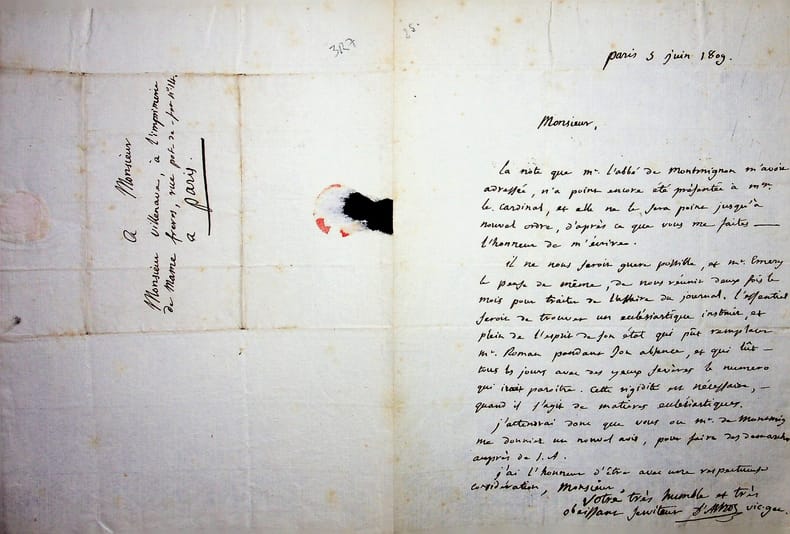 387
25.
A Monsieur
Monsieur Villenave, à l'imprimerie
de Mame freres, rue pot-de-fer n° 14.
a paris.
paris 5 juin 1809.
Monsieur,
La note que mr. l'abbé de Montmignon m'avoit
adressée, n'a point encore été présentée à
le cardinal, et elle ne le sera point jusqu'à
nouvel ordre, d'après ce que vous me faites —
l'honneur de m'écrire.
il ne nous seroit guere possible, et mr. Emery
le pense de même, de nous réunir deux fois le
mois pour traiter de l'affaire du journal. l'essentiel
seroit de trouver un ecclésiastique instruit, et
plein de l'esprit de son état qui pût remplacer
mr. Roman pendant son absence, et qui lût —
tous les jours avec des yeux sévères le numero
qui iroit paroitre. Cette rigidité est nécessaire, —
quand il s'agit de matieres ecclésiastiques.
j'attendrai donc que vous ou mr. de
me donniez un nouvel avis, pour faire des demarches
auprès de S. A.
j'ai l'honneur d'être avec une respectueuse
considération, Monsieur
Votre très humble et très
obéissant serviteur D'Astros vic. gen.